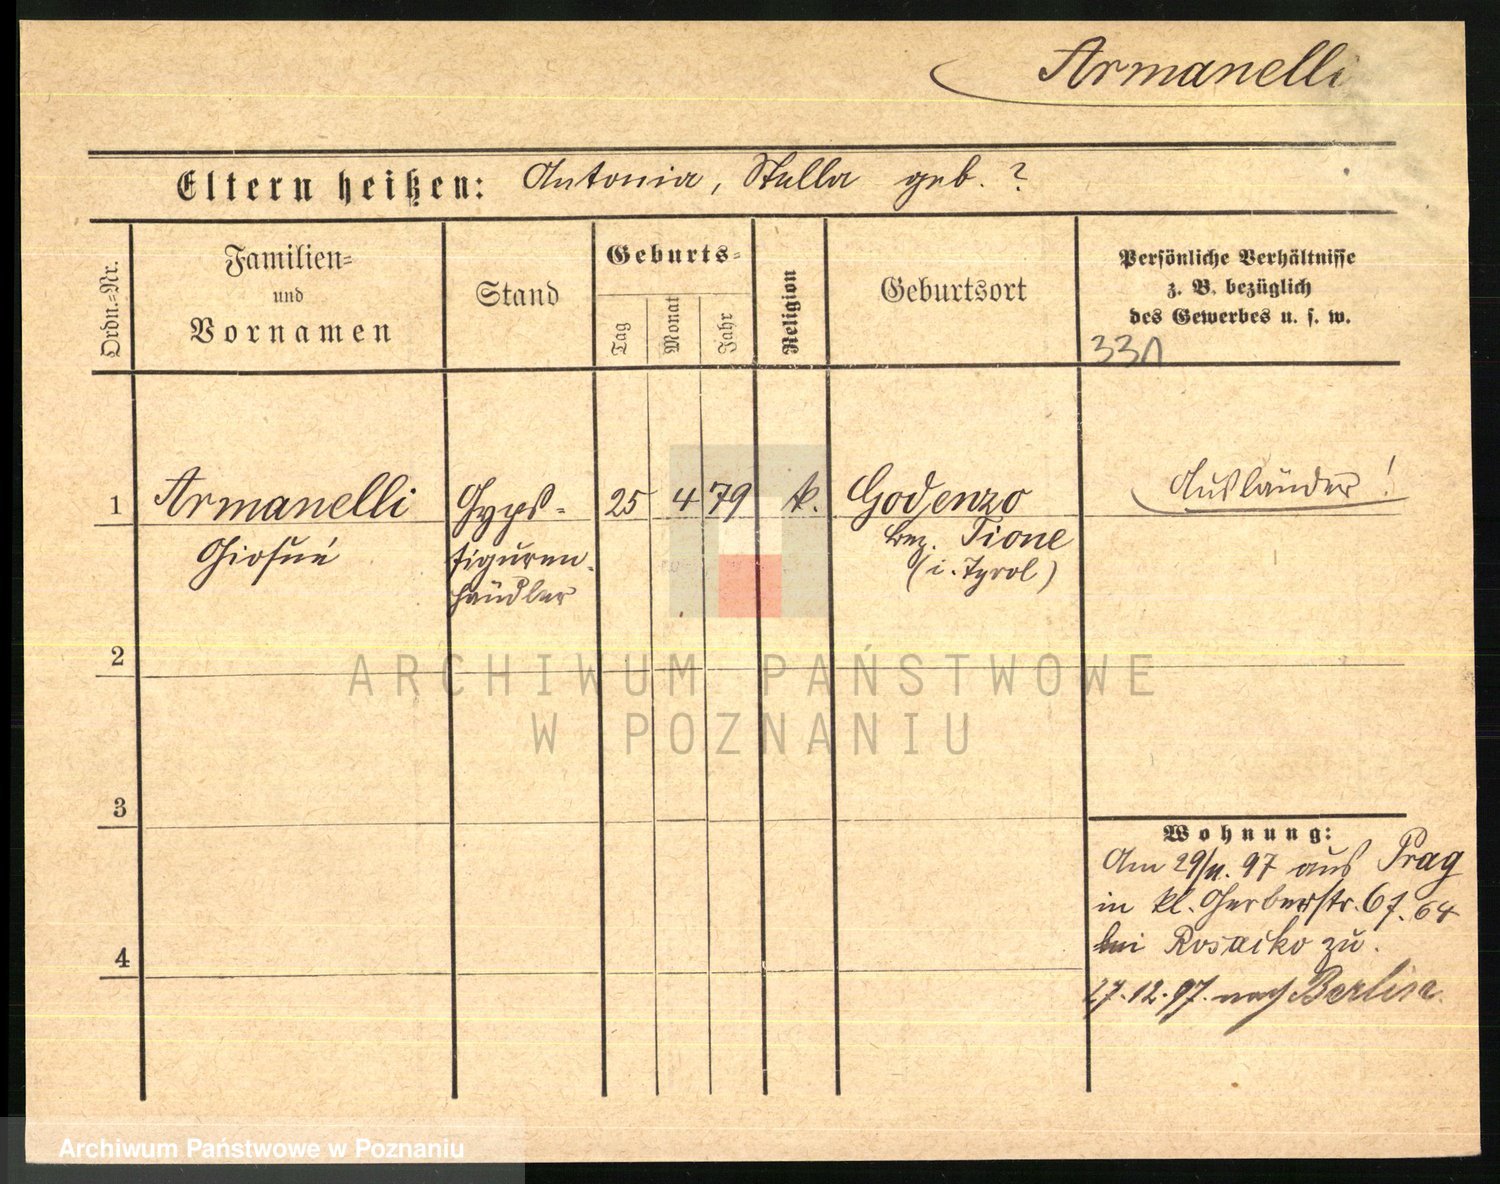 Armanelli
Eltern heißen: Antonia, Stella geb. ?
Ordn.=Nr.
Familien=
und
Vornamen
Stand
Geburts=
Tag
Monat
Jahr
Religion
Geburtsort
Persönliche Verhältnisse
z. B. bezüglich
des Gewerbes u. s. w.
331
1 Armanelli
Giosué
Gyps-
figuren-
händler
25 4 79 k.
Godenzo
bez. Tione
(i. Tyrol)
Ausländer!
2
3
4
Wohnung:
Am 29/11. 97 aus Prag
in kl. Gerberstr. 67. 64
bei Rosaiko zu.
27.12.97. nach Berlin
ARCHIWUM PAŃSTWOWE
W POZNANIU
Archiwum Państwowe w Poznaniu